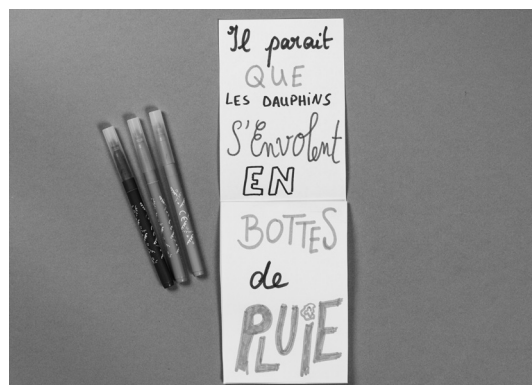 Il parait
QUE
LES DAUPHINS
S'Envolent
EN
BOTTES
de
PLUIE